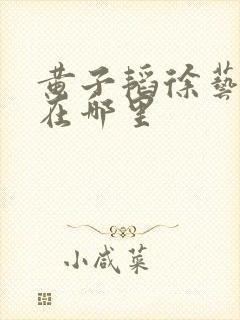 黄子韬徐藝
在哪里
小咸菜